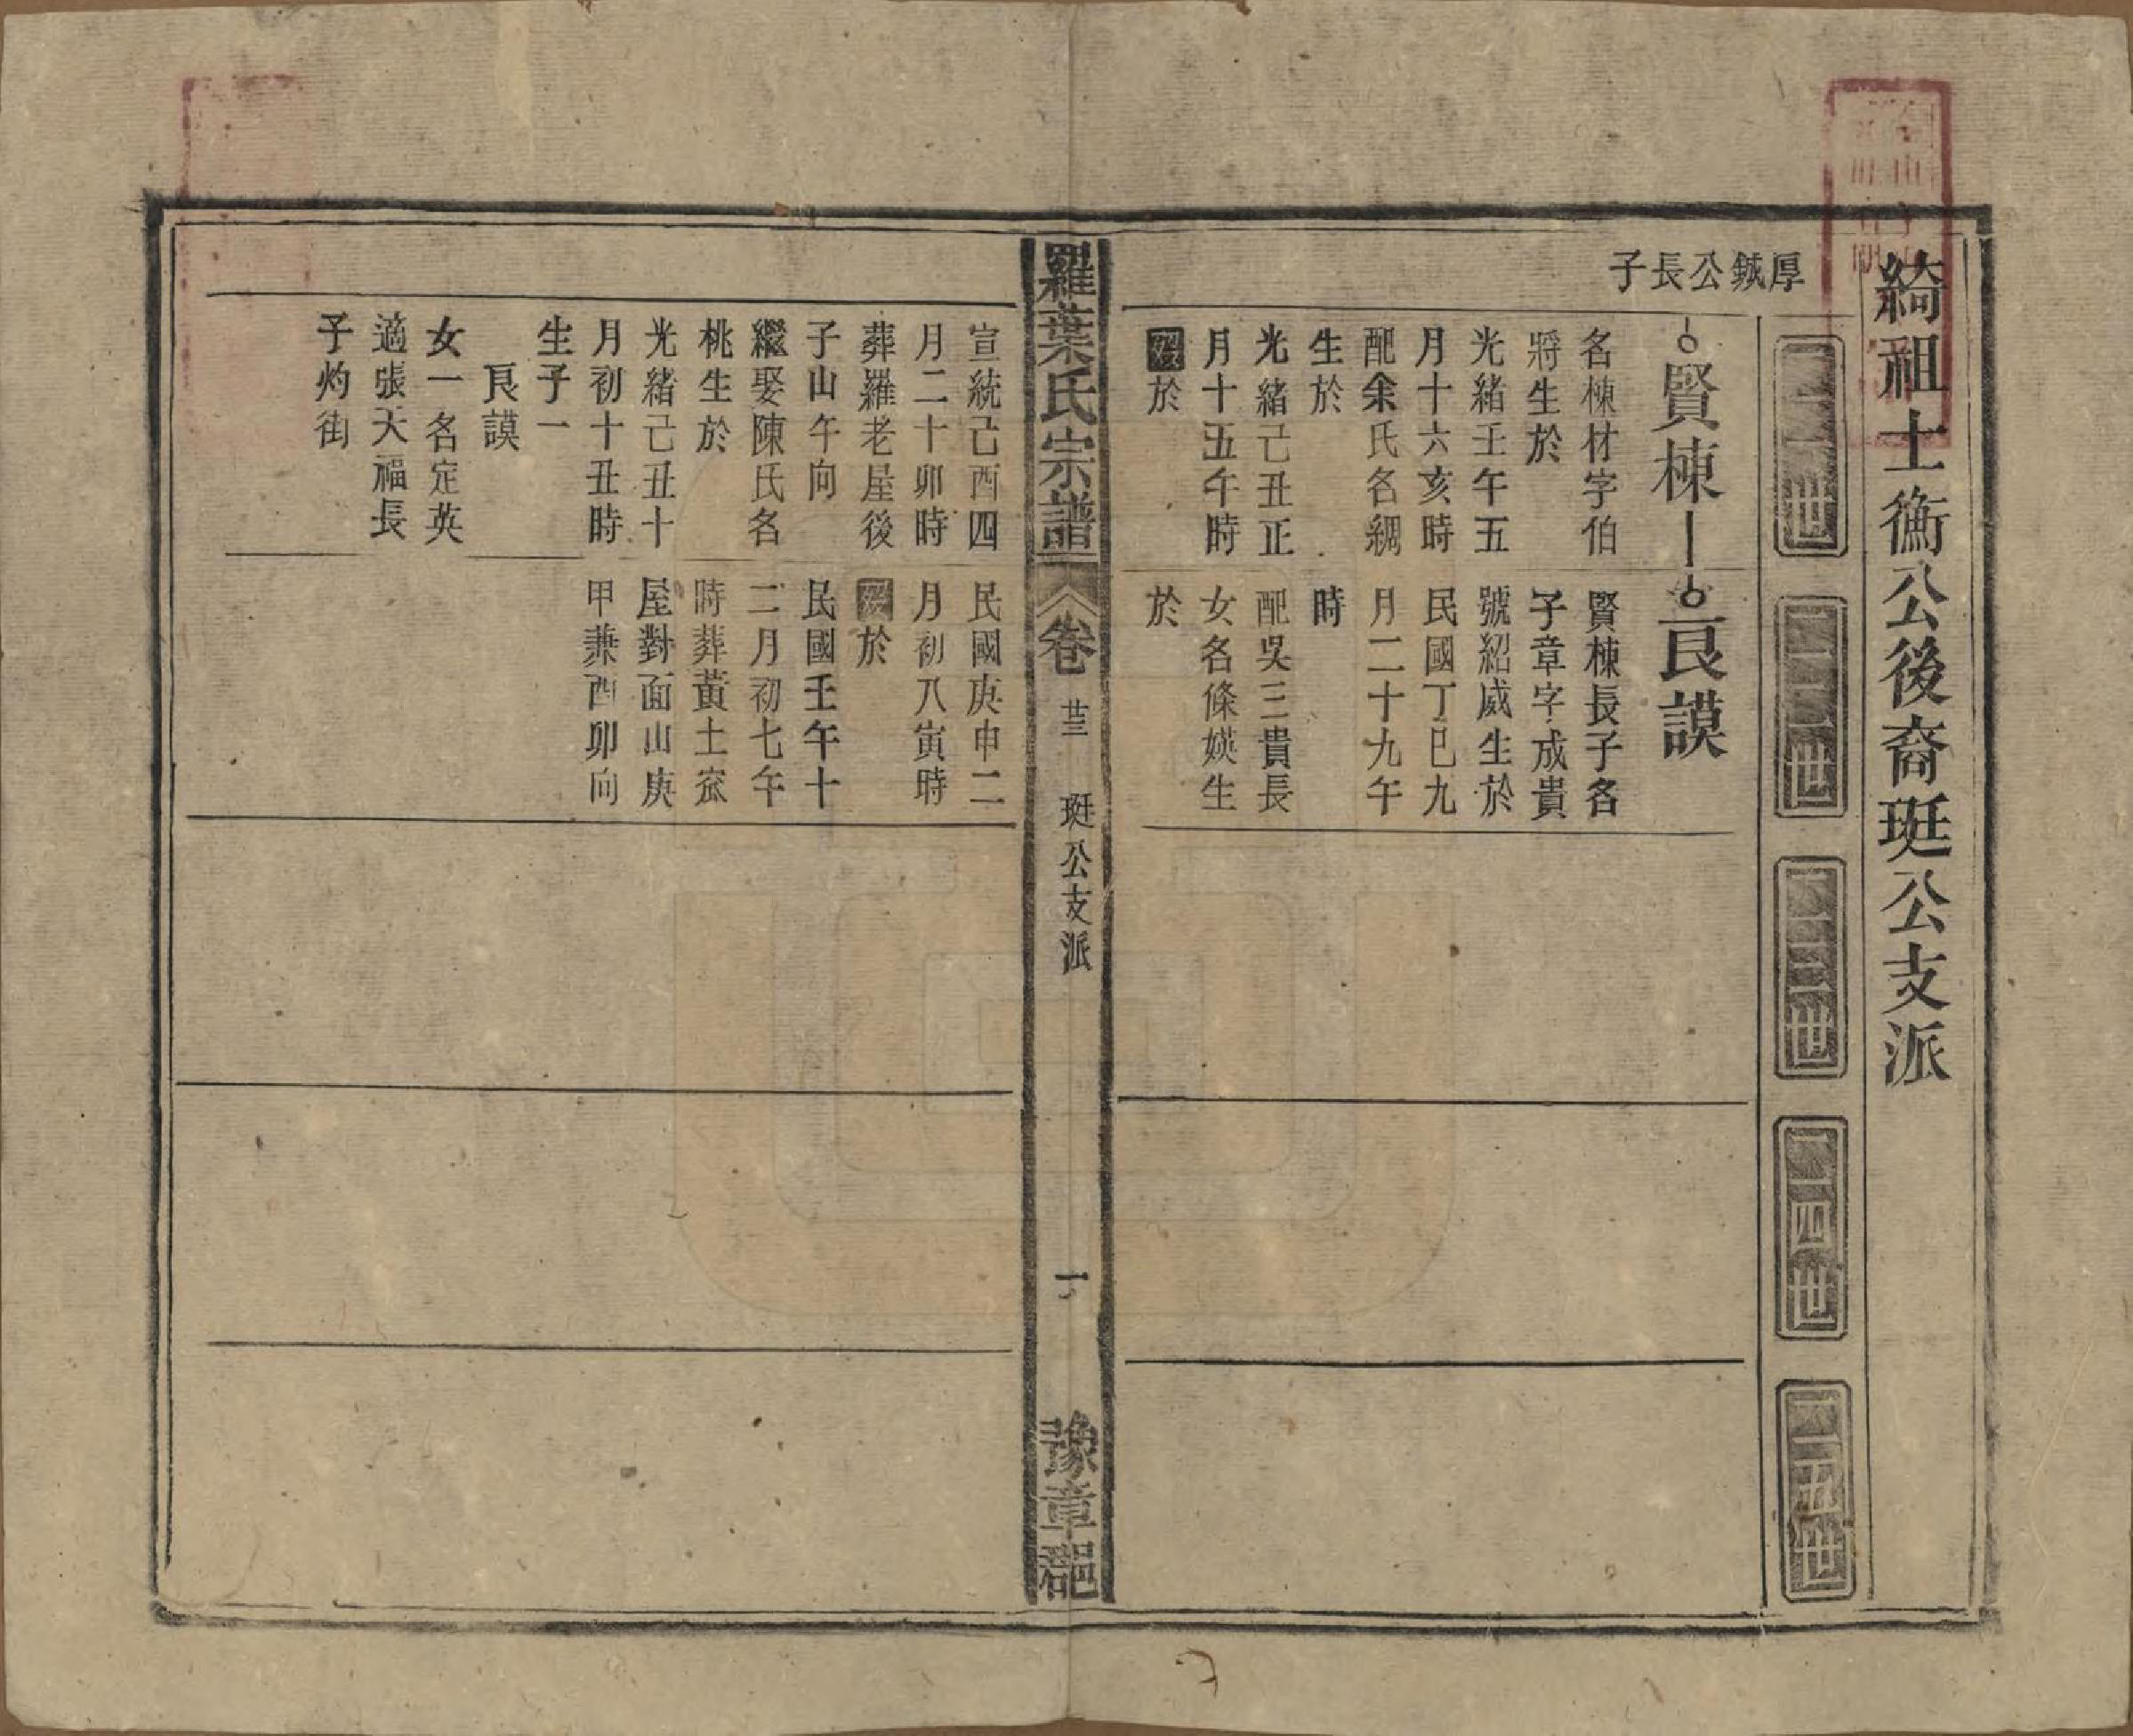 綺祖士衡公後裔珽公支派
二一世
二二世
二三世
二四世
二五世
厚鋮公長子
賢棟
名棟材字伯
將生於
光緒壬午五
月十六亥時
配余氏名綢
生於
光緒己丑正
月十五午時
歿於
宣統己酉四
月二十卯時
葬羅老屋後
子山午向
繼娶陳氏名
桃生於
光緒己丑十
月初十丑時
生子一
良謨
女一名定英
適張天福長
子灼街
良謨
賢棟長子名
子章字成貴
號紹威生於
民國丁巳九
月二十九午
時
配吳三貴長
女名條媖生
於
民國庚申二
月初八寅時
歿於
民國壬午十
二月初七午
時葬黃土窊
屋對面山庚
甲兼酉卯向
羅葉氏宗譜
卷
廿三
珽公支派
一
豫章郡